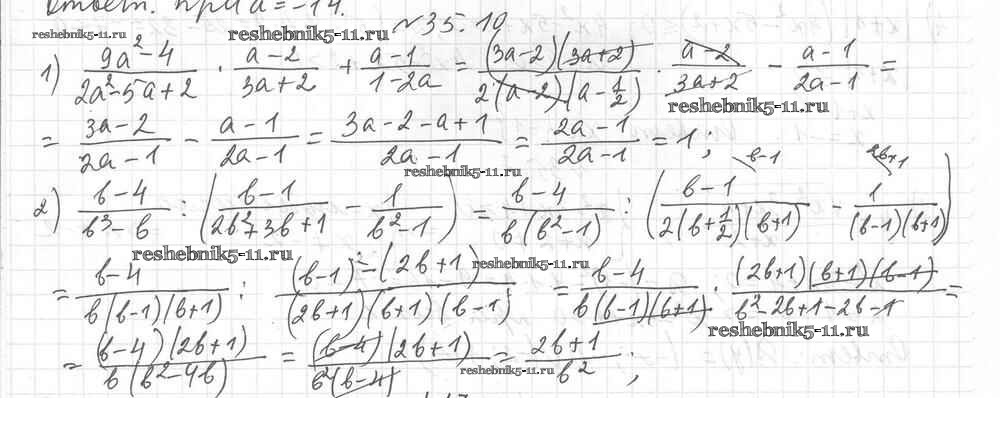 Ответ: при a = -14.
№35.10
reshebnik5-11.ru reshebnik5-11.ru
1) (9a²-4)/(2a²-5a+2) · (a-2)/(3a+2) + (a-1)/(1-2a) = ((3a-2)(3a+2))/(2(a-2)(a-1/2)) · (a-2)/(3a+2) - (a-1)/(2a-1) =
reshebnik5-11.ru
= (3a-2)/(2a-1) - (a-1)/(2a-1) = (3a-2-a+1)/(2a-1) = (2a-1)/(2a-1) = 1;
reshebnik5-11.ru
2) (b-4)/(b³-b) : ((b-1)/(2b²+3b+1) - 1/(b²-1)) = (b-4)/(b(b²-1)) : ((b-1)/(2(b+1/2)(b+1)) \b-1 - 1/((b-1)(b+1)) \2b+1)
reshebnik5-11.ru reshebnik5-11.ru
= (b-4)/(b(b-1)(b+1)) : ((b-1)²-(2b+1))/((2b+1)(b+1)(b-1)) = (b-4)/(b(b-1)(b+1)) · ((2b+1)(b+1)(b-1))/(b²-2b+1-2b-1) =
reshebnik5-11.ru
= ((b-4)(2b+1))/(b(b²-4b)) = ((b-4)(2b+1))/(b²(b-4)) = (2b+1)/b²;
reshebnik5-11.ru